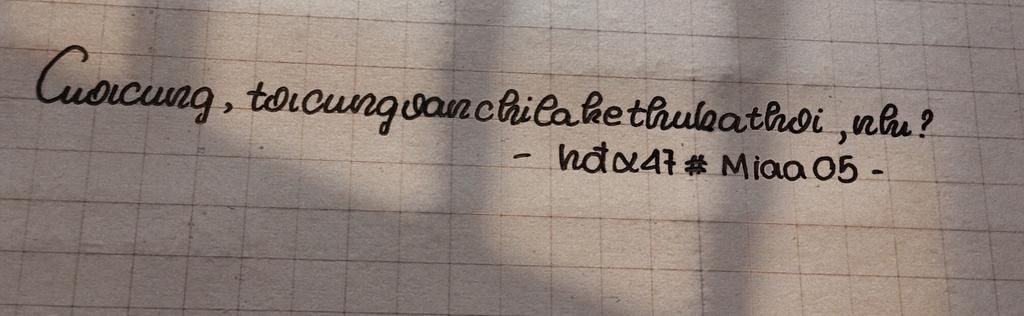 Cuoicung, toicungvanchilakethubathoi, nhu?
- hdta47 # Miaa05 -